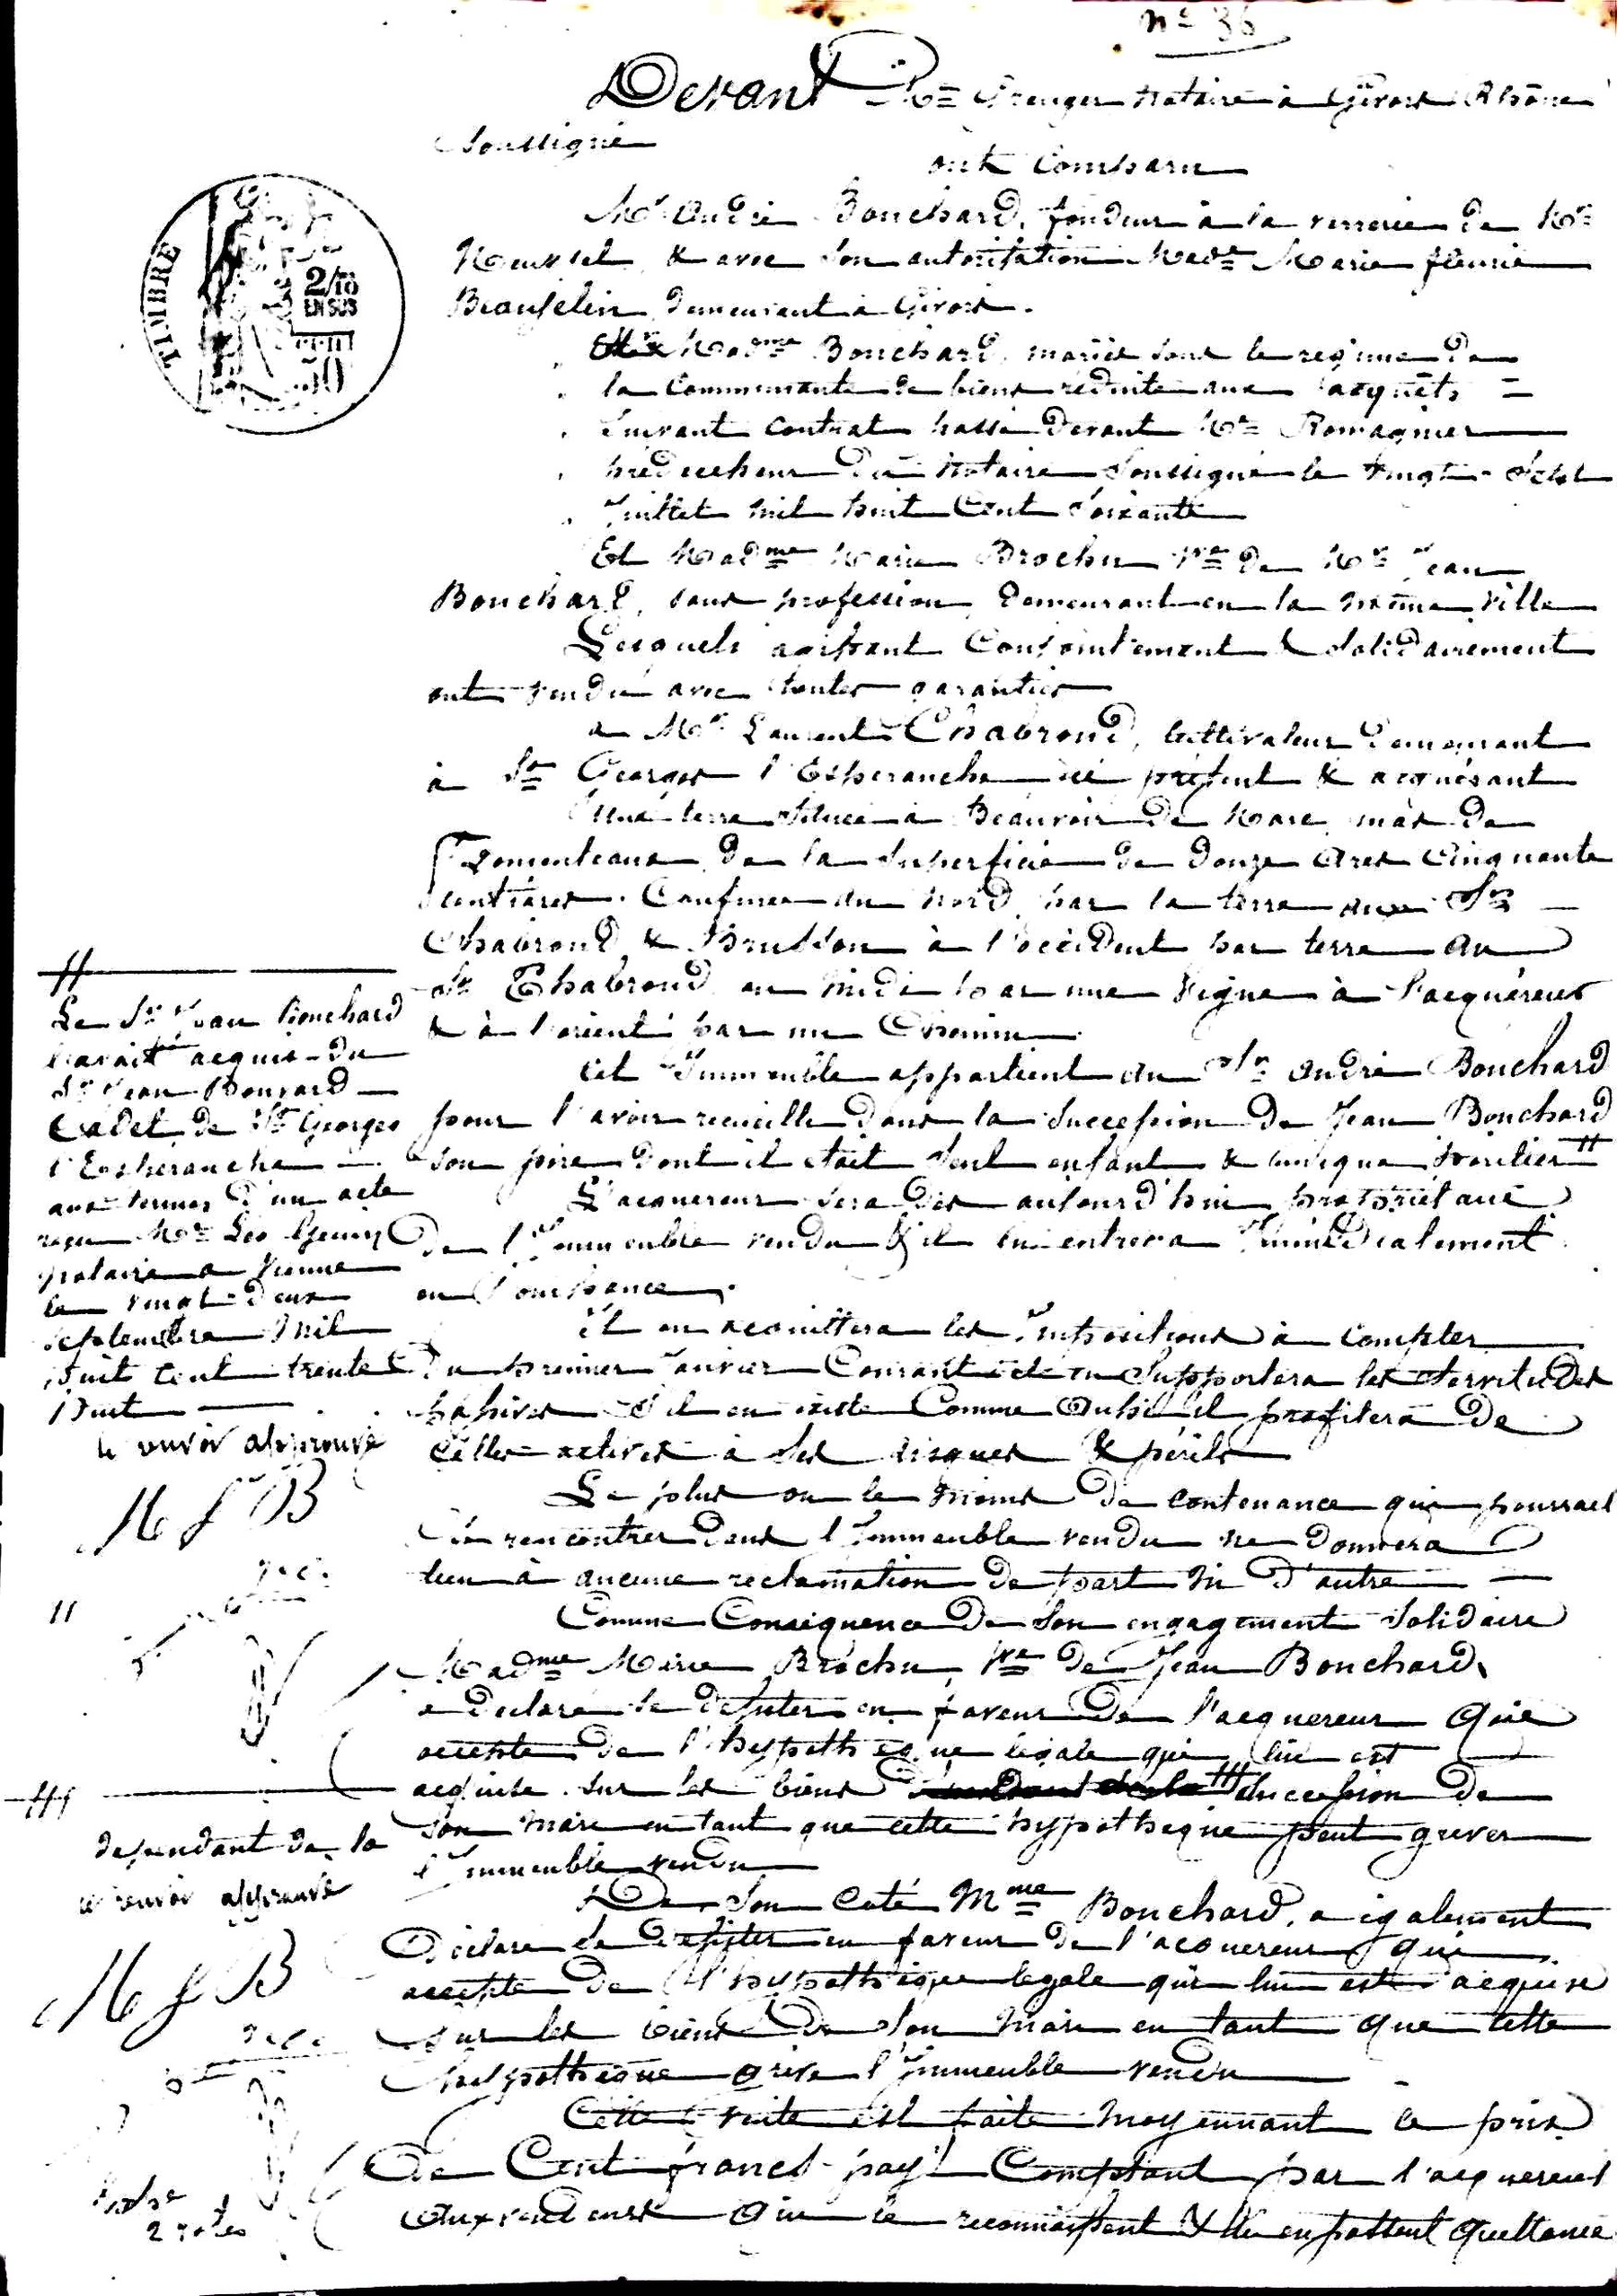 n° 36
Devant Me Grenger notaire à Givors Rhône
Soussigné
ont Comparu
Mr André Bouchard, fondeur à la verrerie de Mr
& avec son autorisation Made Marie fleurie
Beausselin demeurant à Givors.
Madme Bouchard mariée sous le régime de
la Communauté de biens réduite aux acquêts
suivant contrat passé devant Me Romagnier
prédécesseur du notaire soussigné le vingt-sept
Juillet mil huit Cent soixante
Et Madme Marie Brochu Vve de Mr Jean
Bouchard, sans profession demeurant en la même ville
Lesquels agissant Conjointement & solidairement
ont vendu avec toutes garanties
a Mr Laurent Chabroud, Cultivateur demeurant
à St Georges l'Espéranche ici présent & acquérant
Une terre située à Beauvoir de Marc, mas de
Fromenteaux de la superficie de douze ares Cinquante
centiares. Confinée au nord, par la terre aux Srs
Chabroud & Brusson à l'occident par terre au
Sr Chabroud au midi par une vigne à l'acquéreur
& à l'orient par un Chemin
Cet Immeuble appartient au Sr André Bouchard
pour l'avoir recueilli dans la succession de Jean Bouchard
son père dont il était seul enfant & unique héritier #
L'acquereur sera dès aujourd'hui propriétaire
de l'Immeuble vendu & il en entrera Immédiatement
en Jouissance.
Il en acquittera les Impositions à compter
du premier Janvier Courant et en supportera les servitudes
passives s'il en existe Comme aussi il profitera de
celles actives à ses risques & périls
Le plus ou le moins de contenance qui pourrait
se rencontrer dans l'Immeuble vendu ne donnera
lieu à aucune réclamation de part ni d'autre
Comme Conséquence de son engagement solidaire
Madme Marie Brochu Vve de Jean Bouchard,
a déclaré se désister en faveur de l'acquereur qui
accepte de l'hypothèque légale qui lui est
acquise sur les biens succession de
son mari en tant que cette hypothèque peut grever
l'Immeuble vendu
De son côté Mme Bouchard, a également
déclaré se désister en faveur de l'acquereur qui
accepte de l'hypothèque légale qui lui est acquise
sur les biens de son mari en tant que cette
hypothèque grève l'Immeuble vendu
Cette vente est faite moyennant le prix
de Cent francs payé Comptant par l'acquereur
aux vendeurs qui le reconnaissent & lui en passent quittance
TIMBRE
2/10
EN SUS
50
#
Le Sr Jean Bouchard
l'avait acquis du
Sr Jean Bonnard
Cadet de St Georges
l'Espéranche
aux termes d'un acte
reçu Me
notaire à Vienne
le vingt-deux
septembre mil
huit cent trente
huit
le renvoi approuvé
M f B
dépendant de la
le renvoi approuvé
M f B
2 roles